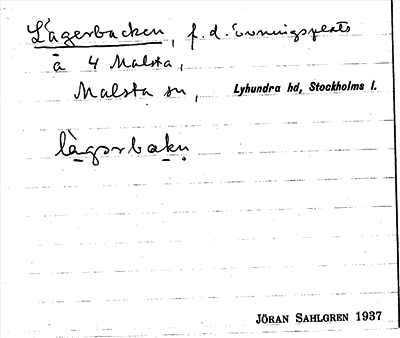 Lägerbacken, f. d. övningsplats
å 4 Malsta,
Malsta sn, Lyhundra hd, Stockholms l.
lägərbakn̥
JÖRAN SAHLGREN 1937